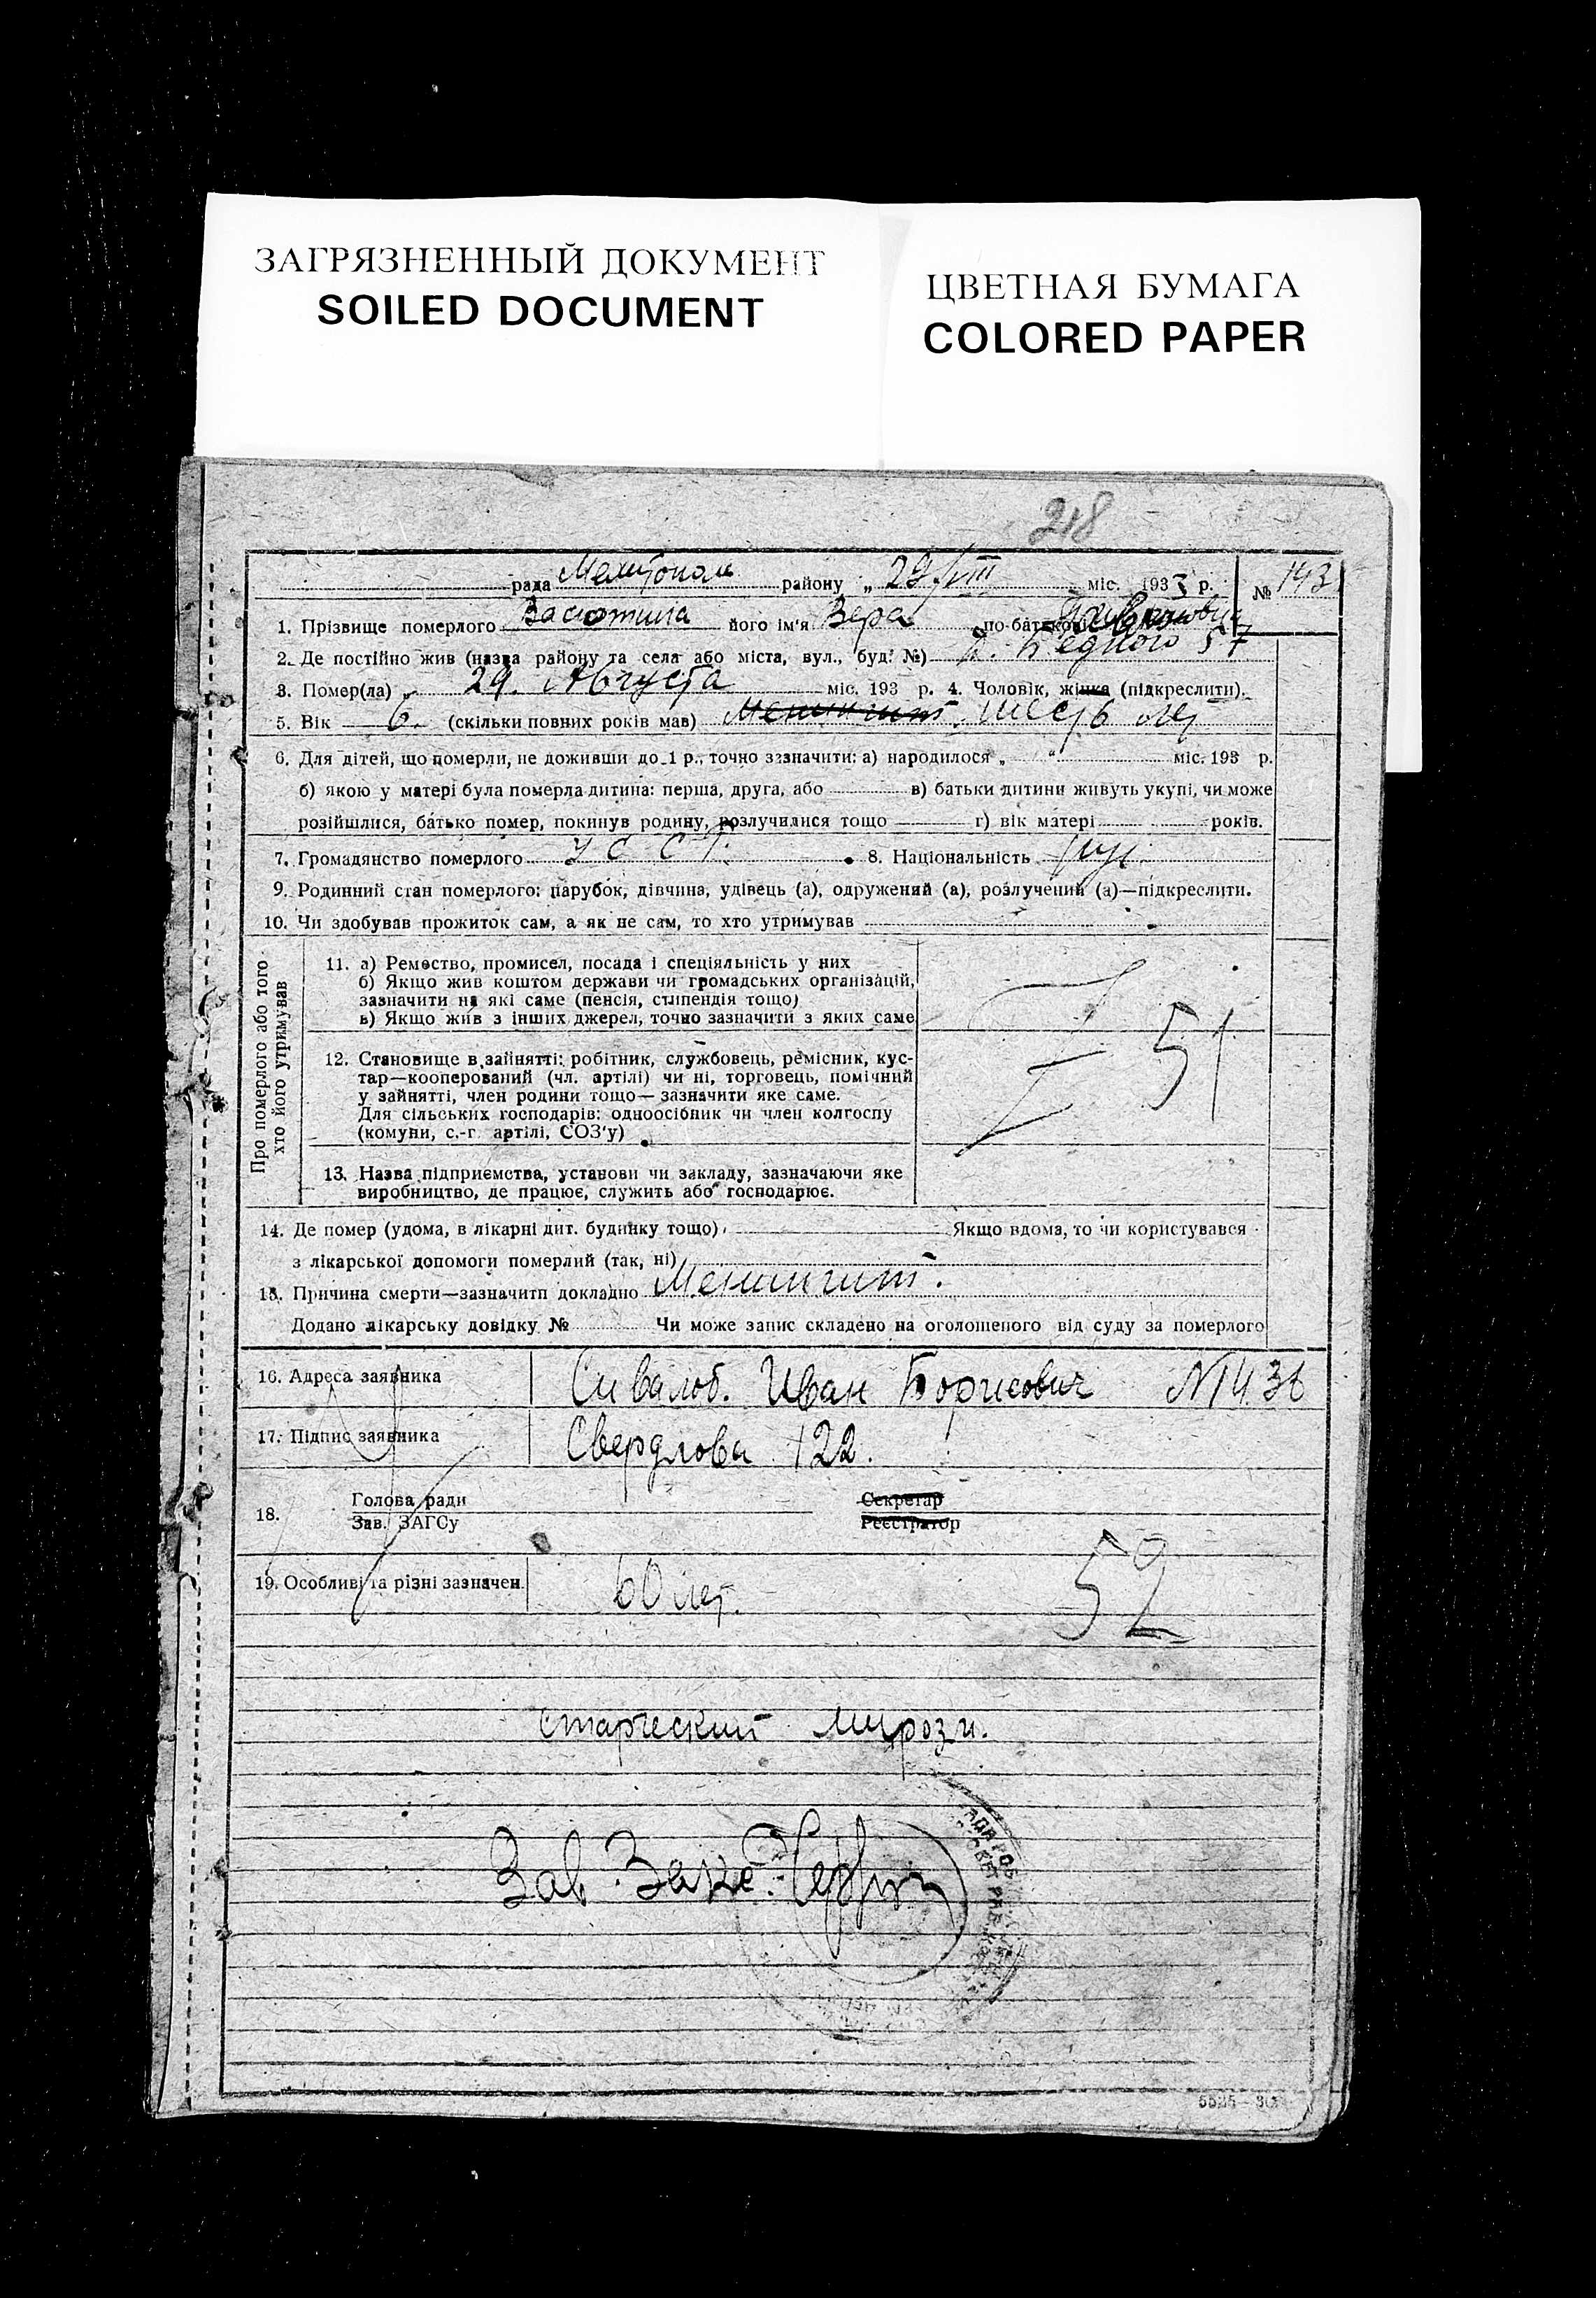 ЗАГРЯЗНЕННЫЙ ДОКУМЕНТ
SOILED DOCUMENT
ЦВЕТНАЯ БУМАГА
COLORED PAPER
218
рада Мелитополь району „ 29/VIII міс. 1933 р. № 143
1. Прізвище померлого його ім'я Вера по-батькові
2. Де постійно жив (назва району та села або міста, вул., буд. №) Д. Бедного 57
3. Помер(ла) „ 29. Августа міс. 193 р. 4. Чоловік, жінка (підкреслити).
5. Вік 6. (скільки повних років мав) Менингит, шесть лет
6. Для дітей, що померли, не доживши до 1 р., точно зазначити: а) народилося „ “ міс. 193 р.
б) якою у матері була померла дитина: перша, друга, або в) батьки дитини живуть укупі, чи може
розійшлися, батько помер, покинув родину, розлучилися тощо г) вік матері років.
7. Громадянство померлого У С С Р. 8. Національність рус
9. Родинний стан померлого: парубок, дівчина, удівець (а), одружений (а), розлучений (а)—підкреслити.
10. Чи здобував прожиток сам, а як не сам, то хто утримував
Про померлого або того
хто його утримував
11. а) Ремество, промисел, посада і спеціяльність у них
б) Якщо жив коштом держави чи громадських організацій,
зазначити на які саме (пенсія, стипендія тощо)
в) Якщо жив з інших джерел, точно зазначити з яких саме
51
12. Становище в зайнятті: робітник, службовець, ремісник, кус-
тар—кооперований (чл. артілі) чи ні, торговець, помічний
у зайнятті, член родини тощо—зазначити яке саме.
Для сільських господарів: одноосібник чи член колгоспу
(комуни, с.-г. артілі, СОЗ'у)
13. Назва підприємства, установи чи закладу, зазначаючи яке
виробництво, де працює, служить або господарює.
14. Де помер (удома, в лікарні дит. будинку тощо) Якщо вдома, то чи користувався
з лікарської допомоги померлий (так, ні)
15. Причина смерти—зазначити докладно Менингит.
Додано лікарську довідку № Чи може запис складено на оголошеного від суду за померлого
16. Адреса заявника Сивалоб. Иван Борисович №
17. Підпис заявника Свердлова 122.
18. Голова ради Секретар
Зав. ЗАГСу Реєстратор
19. Особливі та різні зазначен. 60 лет. 52
старческий
Зав.